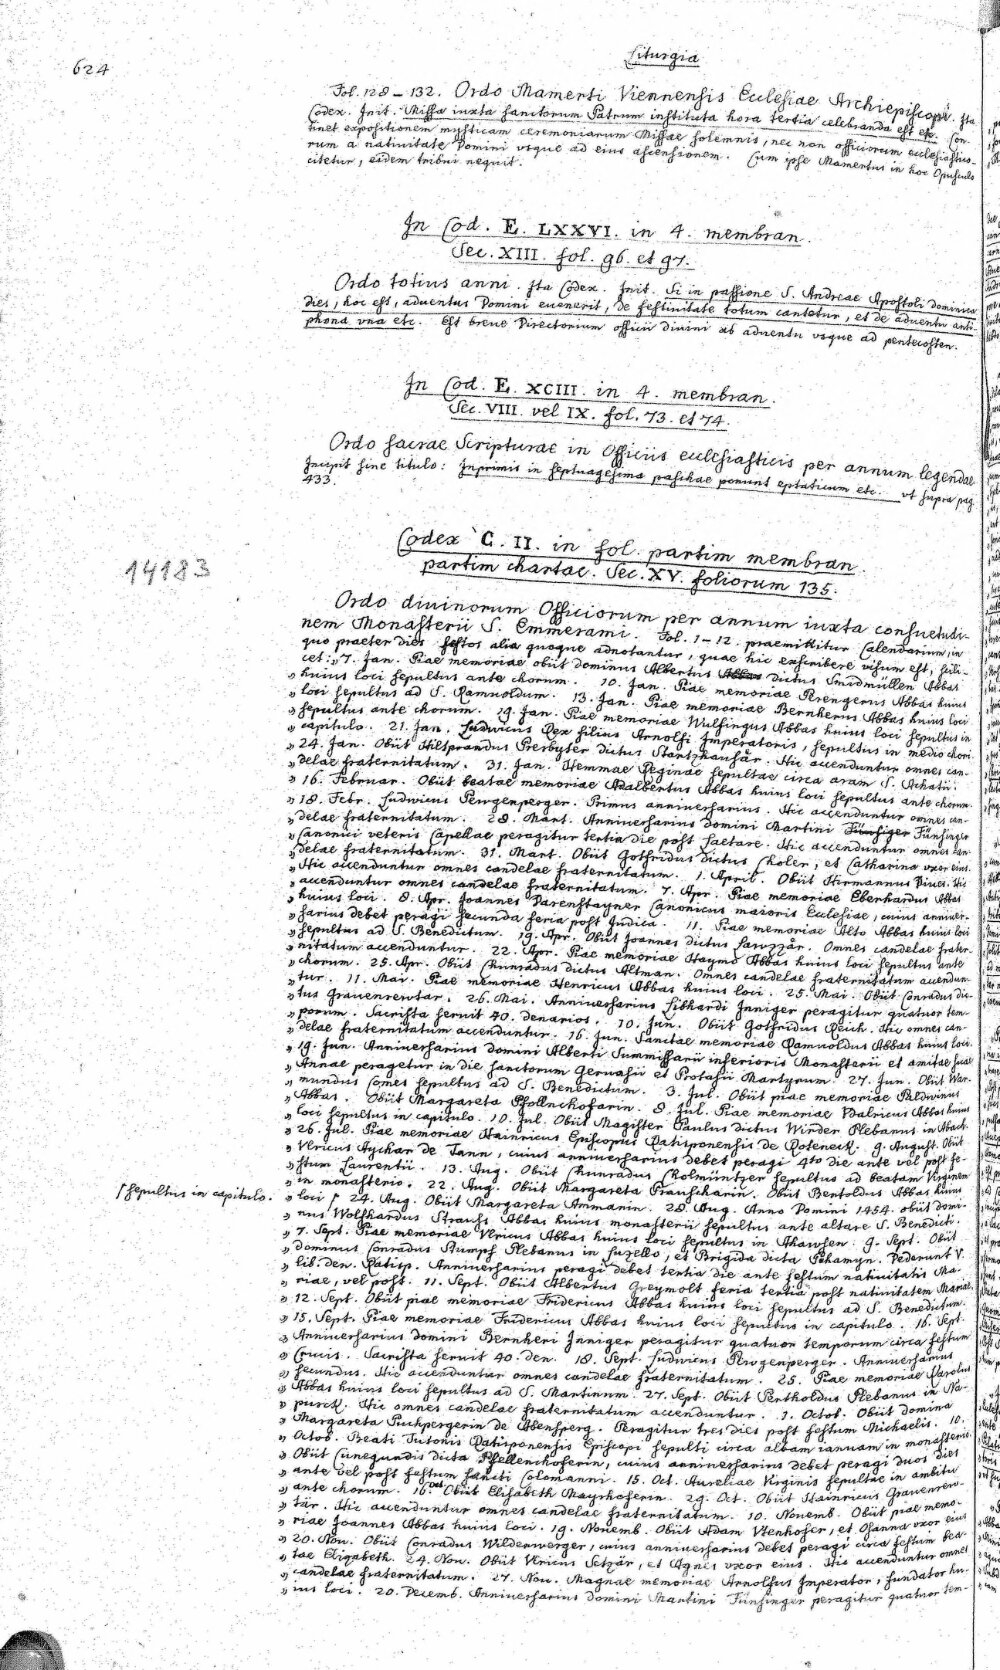 Liturgia
624
Fol. 128 – 132. Ordo Mamerti Viennensis Ecclesiae Archiepiscopi. Ita
Codex. Init. Missa iuxta sanctorum Patrum instituta hora tertia celebranda est etc. Con-
tinet expositionem mysticam ceremoniarum Missae solemnis, nec non officiorum ecclesiastico-
rum a nativitate Domini vsque ad eius ascensionem. Cum ipse Mamertus in hoc Opusculo
citetur, eidem tribui nequit.
In Cod. E. LXXVI. in 4. membran.
Sec. XIII. fol. 96. et 97.
Ordo totius anni. Ita Codex. Init. Si in passione S. Andreae Apostoli dominica
dies, hoc est, aduentus Domini euenerit, de festiuitate totum cantetur, et de aduentu anti-
phona vna etc. Est breue Directorium officii diuini ab aduentu vsque ad pentecosten.
In Cod. E. XCIII. in 4. membran.
Sec. VIII. vel IX. fol. 73. et 74.
Ordo sacrae Scripturae in Officiis ecclesiasticis per annum legendae
Incipit sine titulo: Inprimis in septuagesima paschae ponunt eptaticum etc. vt supra pag.
433.
Codex G. II. in fol. partim membran
partim chartac. Sec. XV. foliorum 135.
14183
Ordo diuinorum Officiorum per annum iuxta consuetudi-
nem Monasterii S. Emmerami. Fol. 1–12. praemittitur Calendarium, in
quo praeter dies festos alia quoque adnotantur, quae hic exscribere visum est, scili-
cet: „7. Jan. Piae memoriae obiit dominus Albertus dictus Smidmüllen Abbas
„huius loci sepultus ante chorum. 10. Jan. Piae memoriae Perengerus Abbas huius
„loci sepultus ad S. Ramuoldum. 13. Jan. Piae memoriae Bernherus Abbas huius loci
„sepultus ante chorum. 19. Jan. Piae memoriae Wulfingus Abbas huius loci sepultus in
„capitulo. 21. Jan. Ludwicus Rex filius Arnolfi Imperatoris, sepultus in medio chori
„24. Jan. Obiit Hiltprandus Presbyter dictus. Hic accenduntur omnes can-
„delae fraternitatum. 31. Jan. Hemmae Reginae sepultae circa aram S. Achatii.
„16. Februar. Obiit beatae memoriae Adalbertus Abbas huius loci sepultus ante chorum.
„18. Febr. Ludwicus Pewgenperger. Primus anniuersarius. Hic accenduntur omnes can-
„delae fraternitatum. 28. Mart. Anniuersarius domini Martini Fünsinger
„Canonici veteris Capellae peragitur tertia die post Laetare. Hic accenduntur omnes can-
„delae fraternitatum. 31. Mart. Obiit Gotfridus dictus Choler, et Catharina vxor eius.
„Hic accenduntur omnes candelae fraternitatum. 1. April. Obiit Hirmannus Diues. Hic
„accenduntur omnes candelae fraternitatum. 7. Apr. Piae memoriae Eberhardus Abbas
„huius loci. 8. Apr. Joannes Parenstayner Canonicus maioris Ecclesiae, cuius anniuer-
„sarius debet peragi secunda feria post Judica. 11. Piae memoriae Alto Abbas huius loci
„sepultus ad S. Benedictum. 19. Apr. Obiit Joannes dictus. Omnes candelae frater-
„nitatum accenduntur. 22. Apr. Piae memoriae Haymo Abbas huius loci sepultus ante
„chorum. 25. Apr. Obiit Chunradus dictus Altman. Omnes candelae fraternitatum accendun-
„tur. 11. Mai. Piae memoriae Henricus Abbas huius loci. 25. Mai. Obiit Conradus dic-
„tus Grauenrewtar. 26. Mai. Anniuersarius Libhardi Inniger peragitur quatuor tem-
„porum. Sacrista seruit 40. denarios. 10. Jun. Obiit Gotfridus Reich. Hic omnes can-
„delae fraternitatum accenduntur. 16. Jun. Sanctae memoriae Ramuoldus Abbas huius loci.
„19. Jun. Anniuersarius domini Alberti Summissarii inferioris Monasterii et amitae suae
„Annae peragetur in die sanctorum Geruasii et Protasii Martyrum. 27. Jun. Obiit War-
„mundus Comes sepultus ad S. Benedictum. 3. Jul. Obiit piae memoriae Paldwinus
„Abbas. Obiit Margareta Pfollnchoferin. 8. Jul. Piae memoriae Vdalricus Abbas huius
„loci sepultus in capitulo. 10. Jul. Obiit Magister Paulus dictus Winder Plebanus in Abach.
„26. Jul. Piae memoriae Hainricus Episcopus Ratisponensis de Roteneck. 9. August. Obiit
„Vlricus Aychar de Tann, cuius anniuersarius debet peragi 4to die ante vel post fe-
„stum Laurentii. 13. Aug. Obiit Chunradus Kolmüntzer sepultus ad beatam Virginem
„in monasterio. 22. Aug. Obiit Margareta Prauscharin. Obiit Bertoldus Abbas huius
„loci ſ 24. Aug. Obiit Margareta Ammanin. 28. Aug. Anno Domini 1454. obiit domi-
ſ sepultus in capitulo.
„nus Wolfhardus Strauss Abbas huius monasterii sepultus ante altare S. Benedicti.
„7. Sept. Piae memoriae Vlricus Abbas huius loci sepultus in Ahawsen. 9. Sept. Obiit
„dominus Conradus Stumpf Plebanus in, et Brigida dicta Pehamyn. Dederunt V.
„lib. den. Ratisp. Anniuersarius peragi debet tertia die ante festum natiuitatis Ma-
„riae, vel post. 11. Sept. Obiit Albertus Greymolt feria tertia post natiuitatem Mariae
„12. Sept. Obiit piae memoriae Fridericus Abbas huius loci sepultus ad S. Benedictum.
„15. Sept. Piae memoriae Fridericus Abbas huius loci sepultus in capitulo. 16. Sept.
„Anniuersarius domini Bernheri Inniger peragitur quatuor temporum circa festum
„Crucis. Sacrista seruit 40. den. 18. Sept. Ludwicus Pewgenperger. Anniuersarius
„secundus. Hic accenduntur omnes candelae fraternitatum. 25. Piae memoriae Karolus
„Abbas huius loci sepultus ad S. Martinum. 27. Sept. Obiit Pertholdus Plebanus in Na-
„purck. Hic omnes candelae fraternitatum accenduntur. 1. Octob. Obiit domina
„Margareta Puchpergerin de Abensperg. Peragitur tres dies post festum Michaelis. 10.
„Octob. Beati Tutonis Ratisponensis Episcopi sepulti circa albam ianuam in monasterio.
„Obiit Cunegundis dicta Pfellenchoferin, cuius anniuersarius debet peragi duos dies
„ante vel post festum sancti Colomanni. 15. Oct. Aureliae Virginis sepultae in ambitu
„ante chorum. 16. Oct. Obiit Elisabeth Mayrhoferin. 29. Oct. Obiit Hainricus Grauenrew-
„tär. Hic accenduntur omnes candelae fraternitatum. 10. Nouemb. Obiit piae memo-
„riae Joannes Abbas huius loci. 19. Nouemb. Obiit Adam Vtenhofer, et Osanna vxor eius
„20. Nov. Obiit Conradus Wildenwerger, cuius anniuersarius debet peragi circa festum bea-
„tae Elizabeth. 24. Nov. Obiit Vlricus Setzär, et Agnes vxor eius. Hic accenduntur omnes
„candelae fraternitatum. 27. Nov. Magnae memoriae Arnolfus Imperator, fundator hu-
„ius loci. 20. Decemb. Anniuersarius domini Martini Fünsinger peragitur quatuor tem-